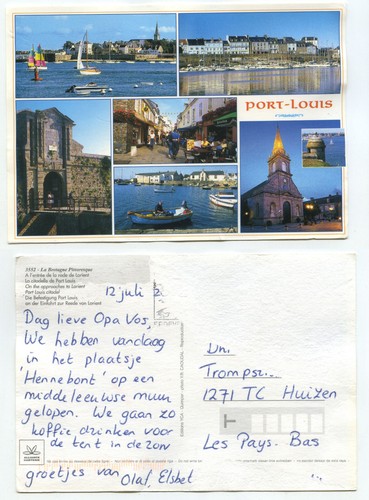 PORT-LOUIS
3552 - La Bretagne Pittoresque
A l'entrée de la rade de Lorient
La citadelle de Port Louis
On the approaches to Lorient
Port Louis citadel
Die Befestigung Port Louis
an der Einfahrt zur Reede von Lorient
12 juli
Dag lieve Opa Vos,
We hebben vandaag
in het plaatsje
'Hennebont' op een
middeleeuwse muur
gelopen. We gaan zo
koffie drinken voor
de tent in de zon
groetjes van Olaf, Elsbet
Dhr.
1271 TC Huizen
Les Pays. Bas